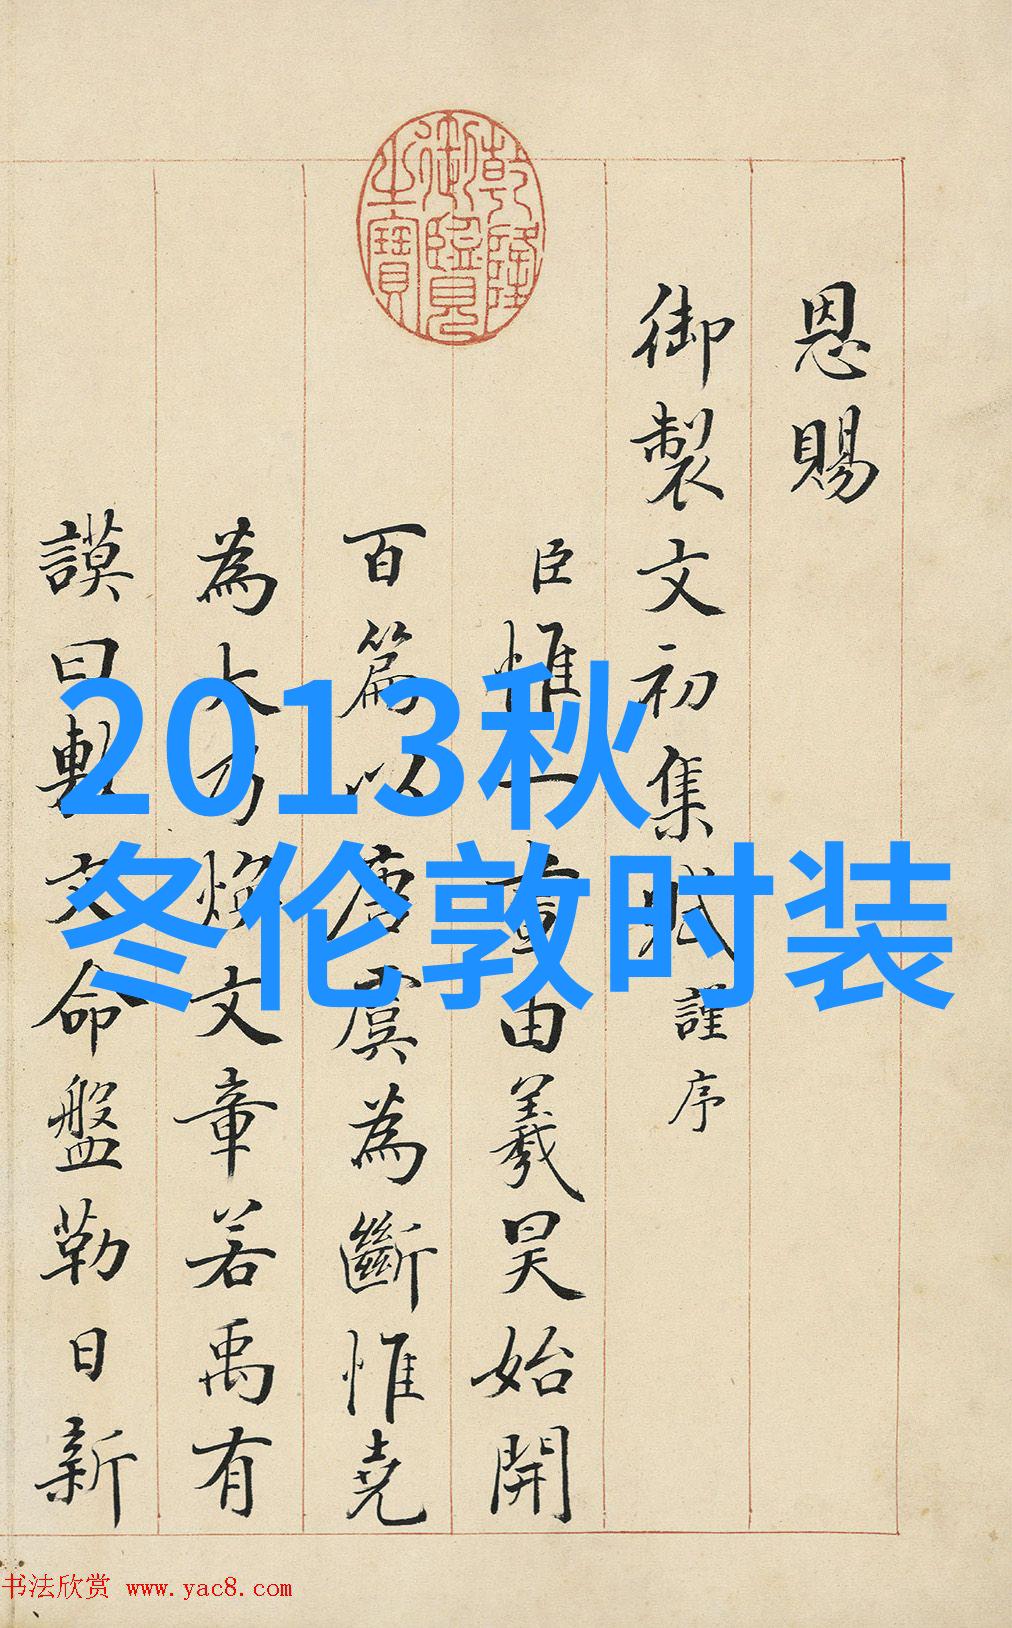 乾隆
御覽
之寶
恩賜
御製文初集謹序
臣惟一畫由羲昊始開
百篇以唐虞為斷惟堯
為大乃煥文章若禹有
謨曰敷文命盤勒日新
2013秋
冬伦敦时装
书法欣赏 www.yac8.com